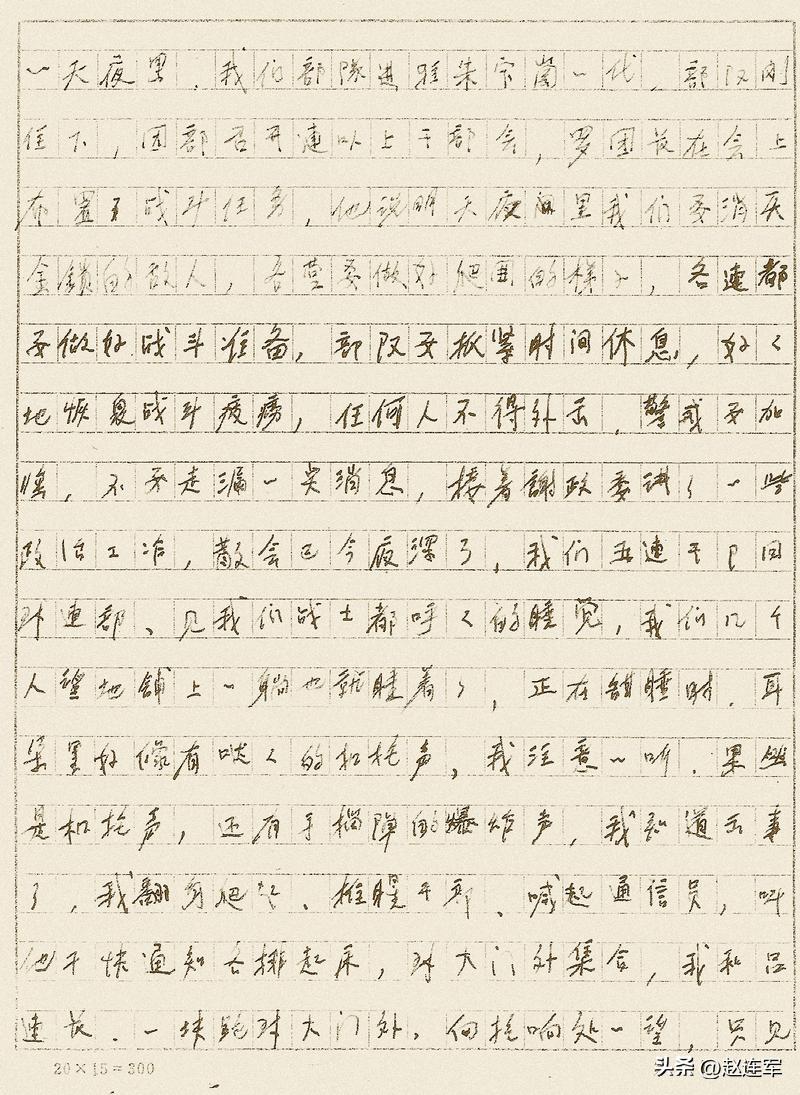 一天夜里，我们部隊进驻朱官崗一代，部队刚
住下，团部召开連以上干部会，罗团长在会上
布置了战斗任务，他说明天夜间里我们要消灭
金鎖的敌人，各营要做好爬围的梯子，各連都
要做好战斗准备，部队要抓紧时间休息，好く
地恢复战斗疲痨，任何人不得外击，警戒要加
强，不要走漏一尖消息，接着謝政委讲了一些
政治工作，散会已今夜深了，我们五連干卩回
到連部、见我们战士都呼く的睡觉，我们几个
人望地铺上一躺也就睡着了，正在甜睡时．耳
朵里好像有哒く的机抢声，我注意一听．果然
是机抢声，还有手榴弹的爆炸声，我知道出事
了，我翻身爬起、推醒干部、喊起通信员，叫
他千快通知各排起床，到大门外集合，我和吕
連长．一块跑到大门外．向抢响处一望，只见
20×15=300
头条 @赵连军